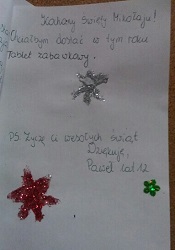 Kochany Święty Mikołaju!
Chciałbym dostać w tym roku
tablet zabawkowy.
PS. Życzę Ci wesołych świąt
Dziękuję,
Paweł lat 12